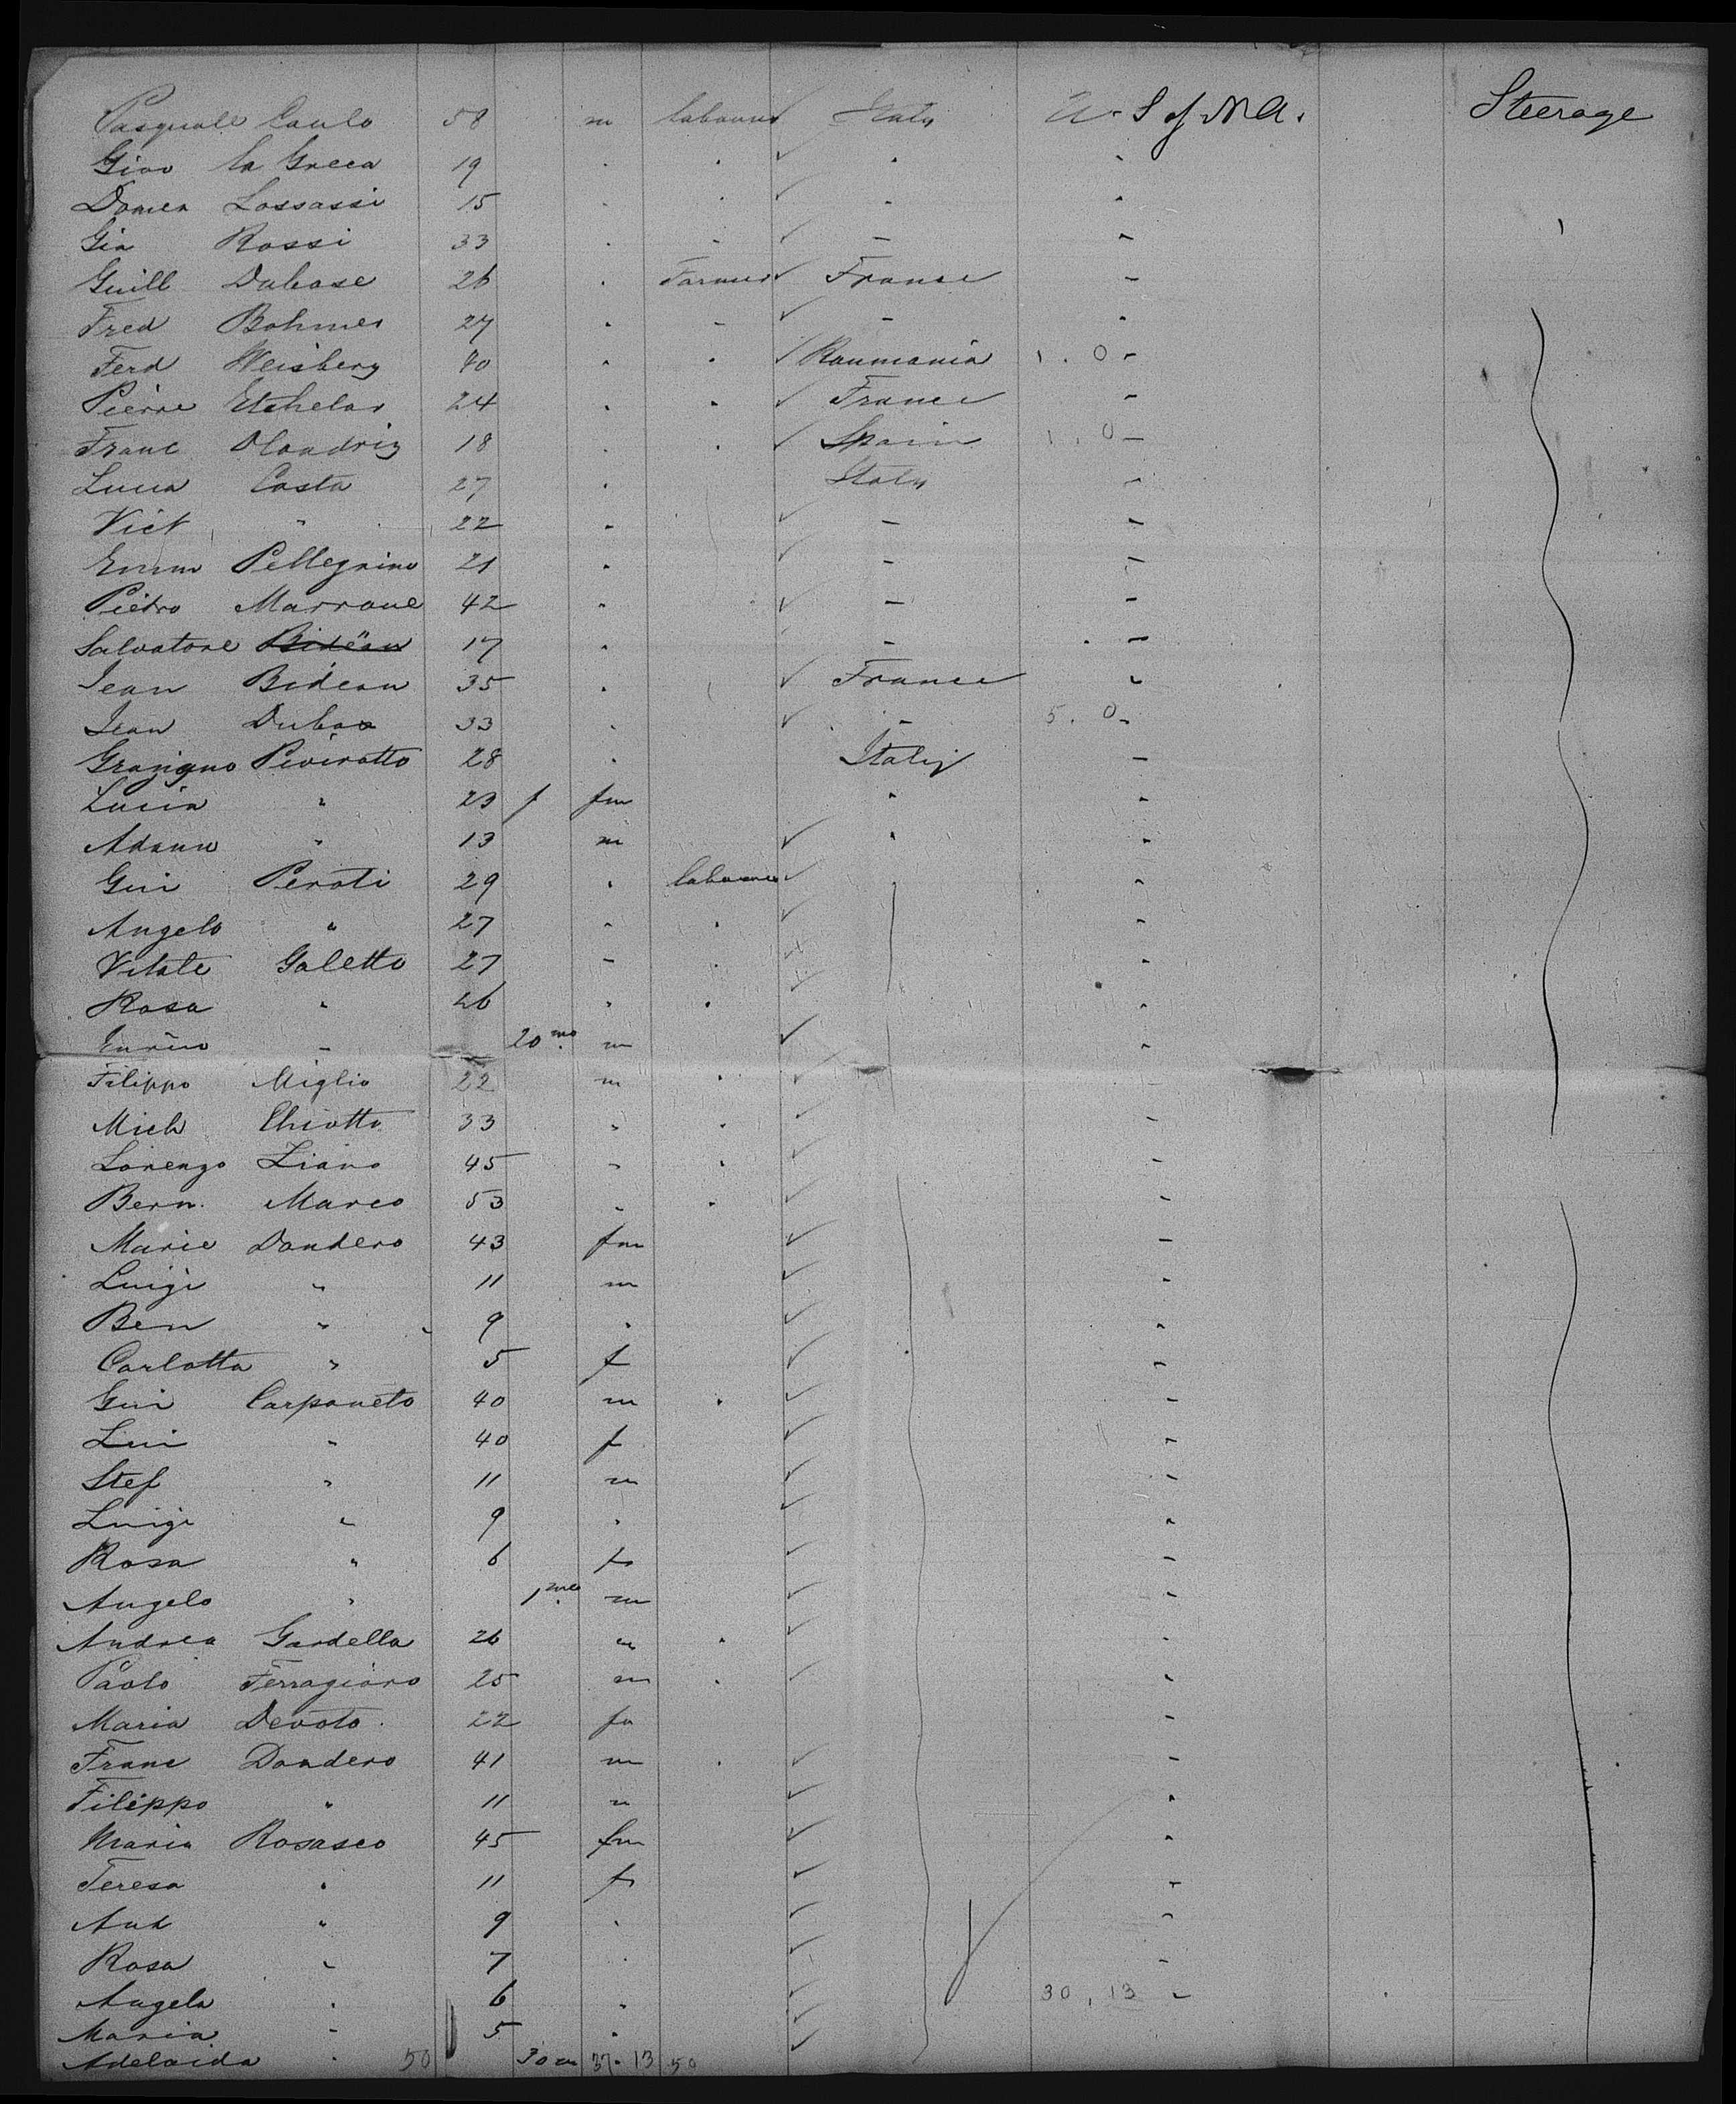 Pasquale Caulo 58 m labourer ✓ Italy U. S of N A. Steerage
Giov la Greca 19 " " ✓ " "
Domen Lossassi 15 " " ✓ " "
Gia Rossi 33 " " ✓ " "
Guill Dubose 26 " Farmer ✓ France "
Fred Bohmer 27 " " ✓ " "
Ferd Weisberg 40 " " ✓ Roumania 1 . 0 "
Pierre Etchelar 24 " " ✓ France "
Franc 18 " " ✓ Spain 1 . 0 "
Lucia Costa 27 " Italy "
Vict " 22 " ✓ " "
Emm Pellegrino 21 " ✓ " "
Pietro Marrone 42 " ✓ " "
Salvatore 17 " " "
Jean Bideau 35 " ✓ France "
Jean Dubos 33 " ✓ " 5 . 0 "
Pivirotto 28 " Italy "
Lucia " 23 f fm " "
Adamo " 13 m ✓ " "
Gui Peroti 29 " labourer ✓ "
Angelo " 27 " " ✓ "
Vitale Galetto 27 " " ✓ "
Rosa " 26 " " ✓ "
Enrico " 20 mo. m ✓ "
Filippo Miglio 22 m " ✓ "
Mich Chiotto 33 " " ✓ "
Lorenzo Ziano 45 " " ✓ "
Bern. Marco 53 " " ✓ "
Marie Dondero 43 fm ✓ "
Luigi " 11 m ✓ "
Ben " 9 " ✓ "
Carlotta " 5 f ✓ "
Gui Carpaneto 40 m " ✓ "
Lui " 40 f ✓ "
Stef " 11 m ✓ "
Luigi " 9 " ✓ "
Rosa " 6 f ✓ "
Angelo " 1 mo. m ✓ "
Andrea Gardella 26 m " ✓ "
Paolo Ferragiaro 25 m " ✓ "
Maria Devoto. 22 fm "
Franc Dondero 41 m " ✓ "
Filippo " 11 m ✓ "
Maria Rosasco 45 fm ✓ "
Teresa " 11 f ✓ "
Ant " 9 " ✓ "
Rosa " 7 " ✓ "
Angela " 6 " ✓ 30 , 13 "
Maria " 5 " ✓
Adelaida " 50 30 m 37 . 13 50 ✓